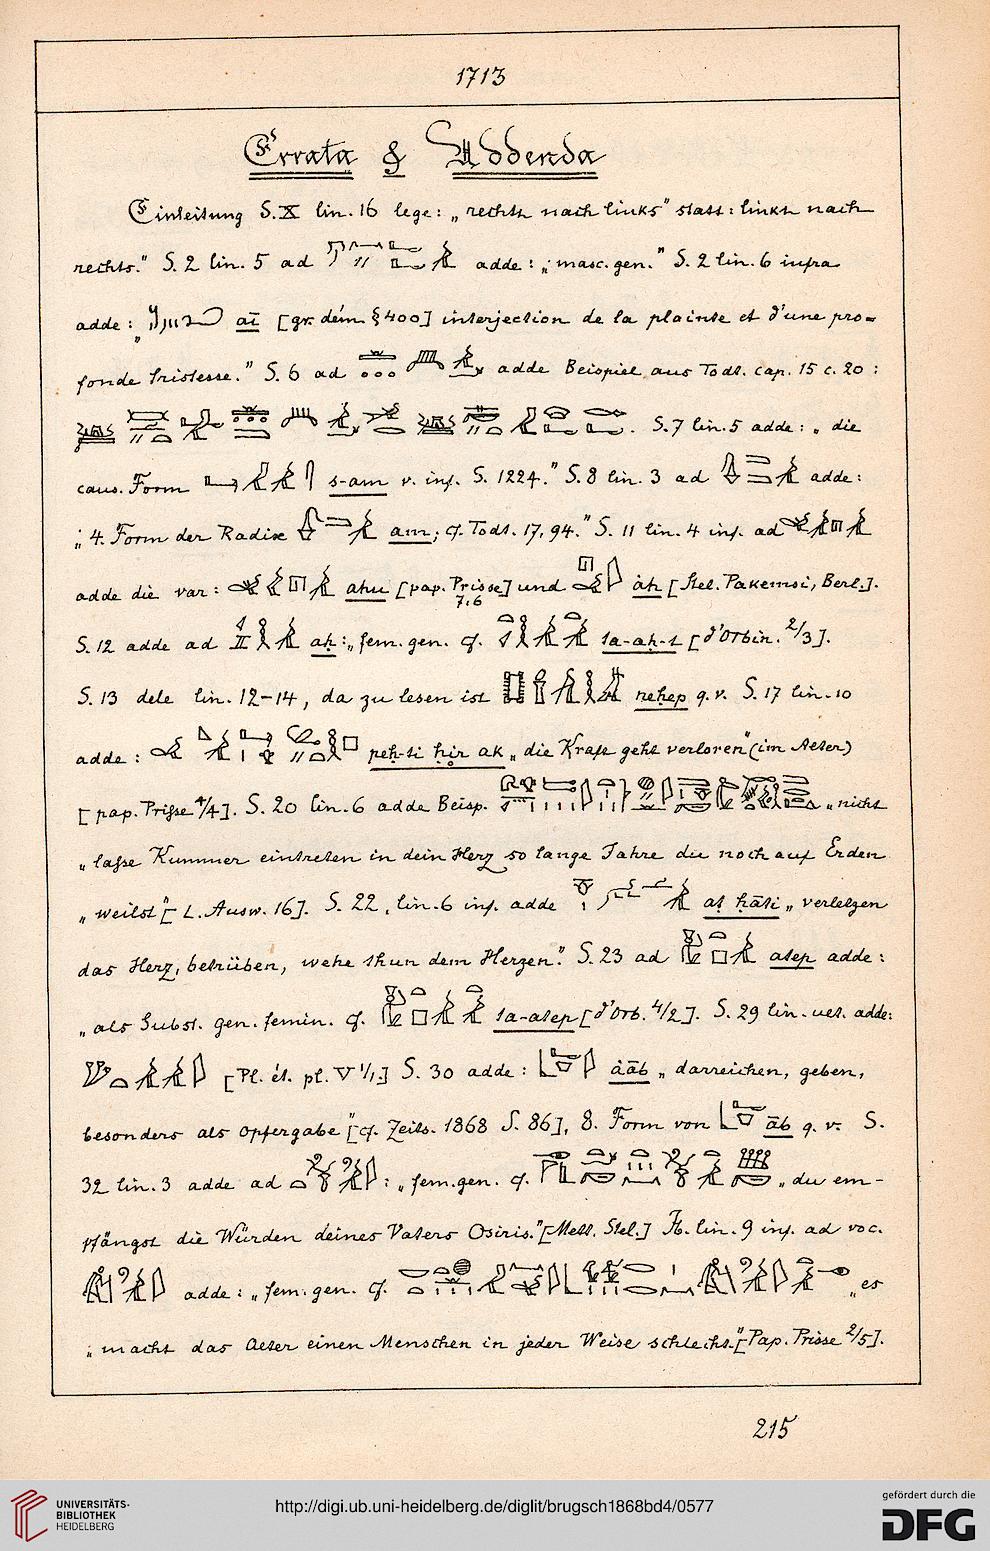 1713
Errata & Addenda
Einleitung S. X lin. 16 lege: „rechts nach links" statt: links nach
rechts." S. 2 lin. 5 ad adde: „masc. gen." S. 2 lin. 6 infra
adde: „ aī [gr. dém. § 400] interjection de la plainte et d'une pro=
fonde tristesse." S. 6 ad adde Beispiel aus Todt. cap. 15 c. 20:
S. 7 lin. 5 adde: „die
caus. Form s-am v. inf. S. 1224." S. 8 lin. 3 ad adde:
„4. Form der Radix am; cf. Todt. 17, 94." S. 11 lin. 4 inf. ad
adde die var: ahu [pap. Prisse 7,6] und àh [Stel. Pakemsi, Berl.].
S. 12 adde ad aḥ: „fem. gen. cf. ta-aḥ-t [d'Orbin. 2/3].
S. 13 dele lin. 12-14, da zu lesen ist neḥep q. v. S. 17 lin. 10
adde: peḥ-ti ḥir ak „die Kraft geht verloren" (im Alter)
[pap. Prisse 4/4]. S. 20 lin. 6 adde Beisp. „nicht
„lasse Kummer eintreten in dein Herz so lange Jahre du noch auf Erden
„weilst" [L. Ausw. 16]. S. 22, lin. 6 inf. adde at ḥāti „verletzen
das Herz, betrüben, wehe thun dem Herzen". S. 23 ad atep adde:
„als Subst. gen. femin. cf. ta-atep [d'Orb. 4/2]. S. 29 lin. ult. adde:
[Pl. ét. pl. V 1/1] S. 30 adde: àāb „darreichen, geben,
besonders als Opfergabe" [cf. Zeits. 1868 S. 86], 8. Form von āb q. v. S.
32 lin. 3 adde ad : „fem. gen. cf. „du em-
pfängst die Würden deines Vaters Osiris." [Mett. Stel.] Ib. lin. 9 inf. ad voc.
adde: „fem. gen. cf. „es
„macht das Alter einen Menschen in jeder Weise schlecht." [Pap. Prisse 2/5].
215
UNIVERSITÄTS-
BIBLIOTHEK
HEIDELBERG
http://digi.ub.uni-heidelberg.de/diglit/brugsch1868bd4/0577
gefördert durch die
DFG